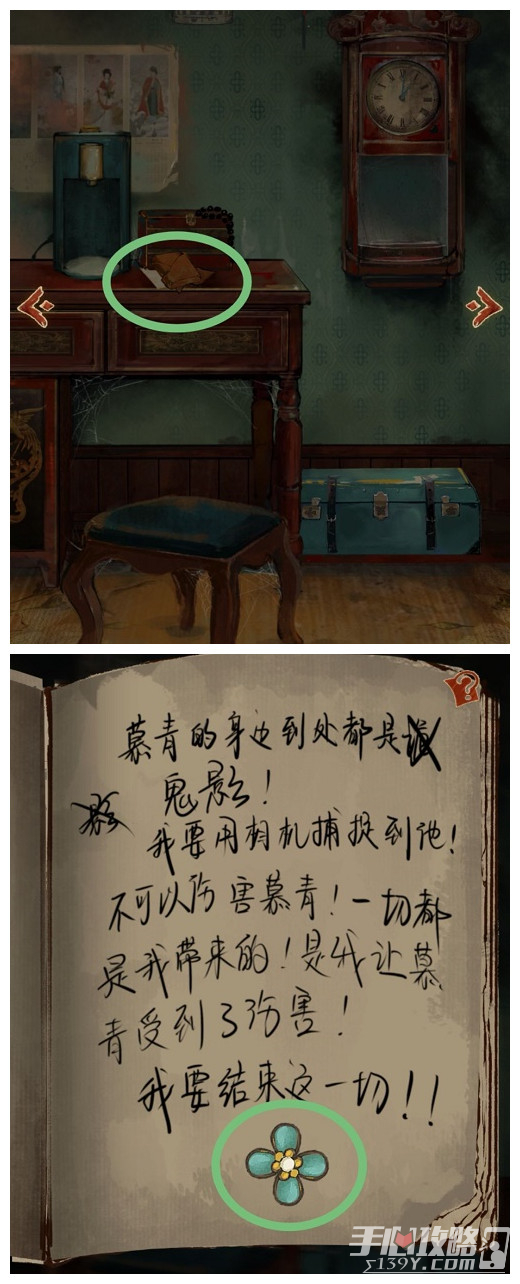 慕青的身边到处都是
鬼影！
我要用相机捕捉到他！
不可以伤害慕青！一切都
是我带来的！是我让慕
青受到了伤害！
我要结束这一切！！
手心攻略
5139Y.com